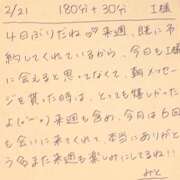 2/21 180分+30分 I様
4日ぶりだね 来週、既に予
約してくれているから、今日もI様
に会えると思ってなくて、朝メッセー
ジを貰った時は、とっても嬉しかった
よ(o^^o) 来週も含め、今月は6回
も会いに来てくれて、本当にありがと
う また来週も楽しみにしてるね!!
みと